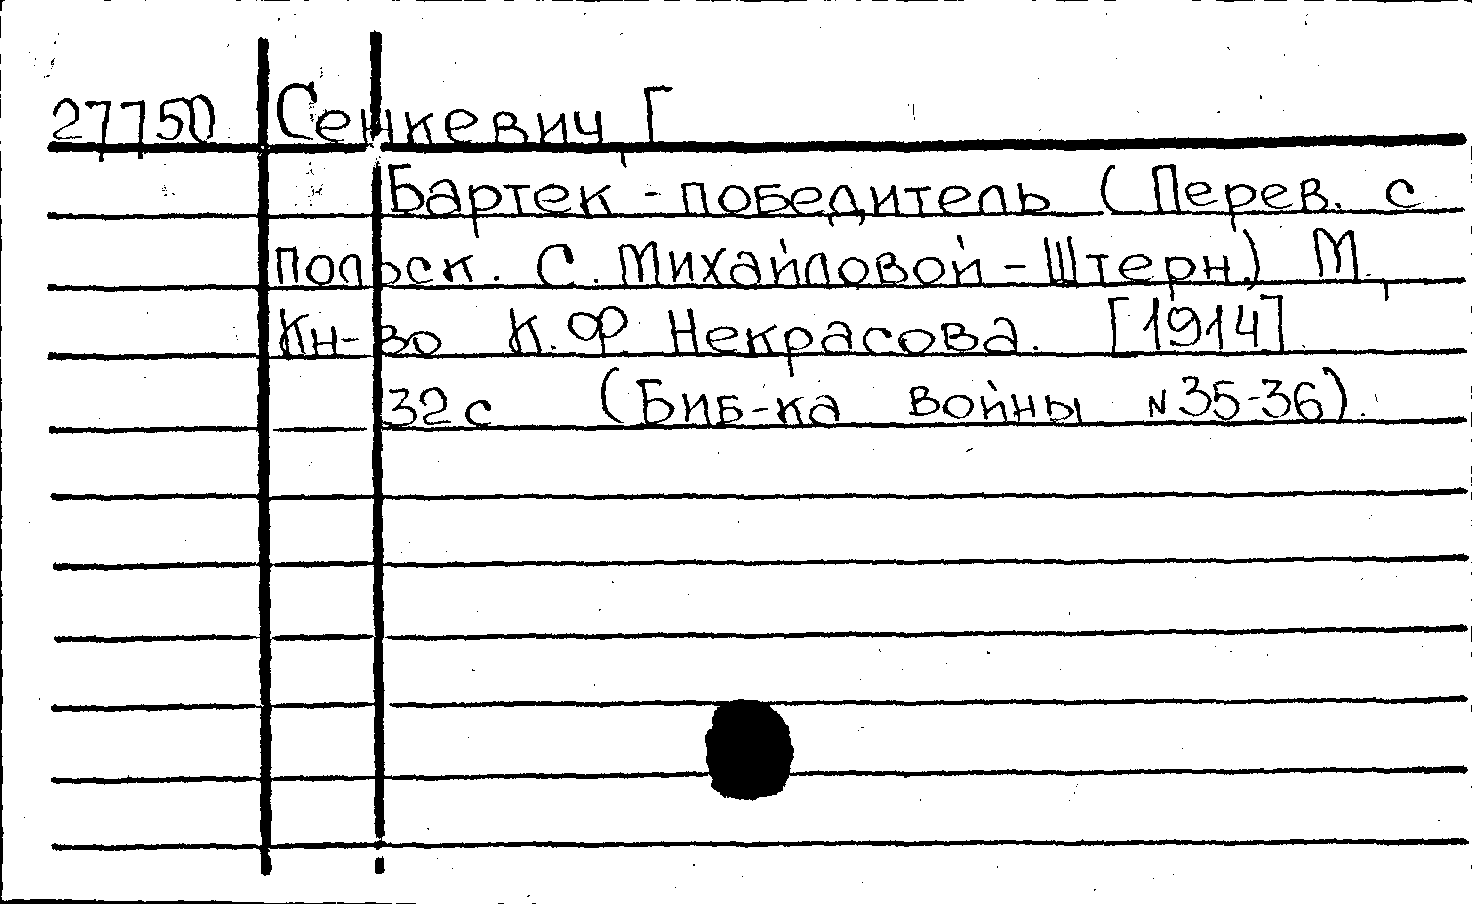 27750 Сенкевич, Г
Бартек - победитель (Перев. с
польск. С. Михайловой - Штерн.) М.,
Кн-во К.Ф Некрасова. [1914]
32 с (Биб-ка войны N 35-36).